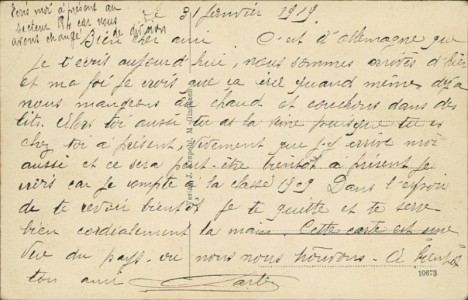 Ecris moi à présent au
secteur 84 car nous
avons changé de division
le 31 Janvier 1919.
Bien cher ami C'est d'Allemagne que
je t'écris aujourd'hui, nous sommes arrivés d'hier
et ma foi je crois que ca ira quand même déjà
nous mangeons de chaud et couchons dans des
lits. Alors toi aussi tu as la puisque tu es
chez toi à présent, vivement que j'y arrive moi
aussi et ce sera peut-être bientôt à présent je
crois car je compte à la classe 1909 Dans l'espoir
de te revoir bientôt je te quitte et te serre
bien cordialement la main. Cette carte est une
vue du pays où nous nous trouvons. A bientôt
ton ami
10673